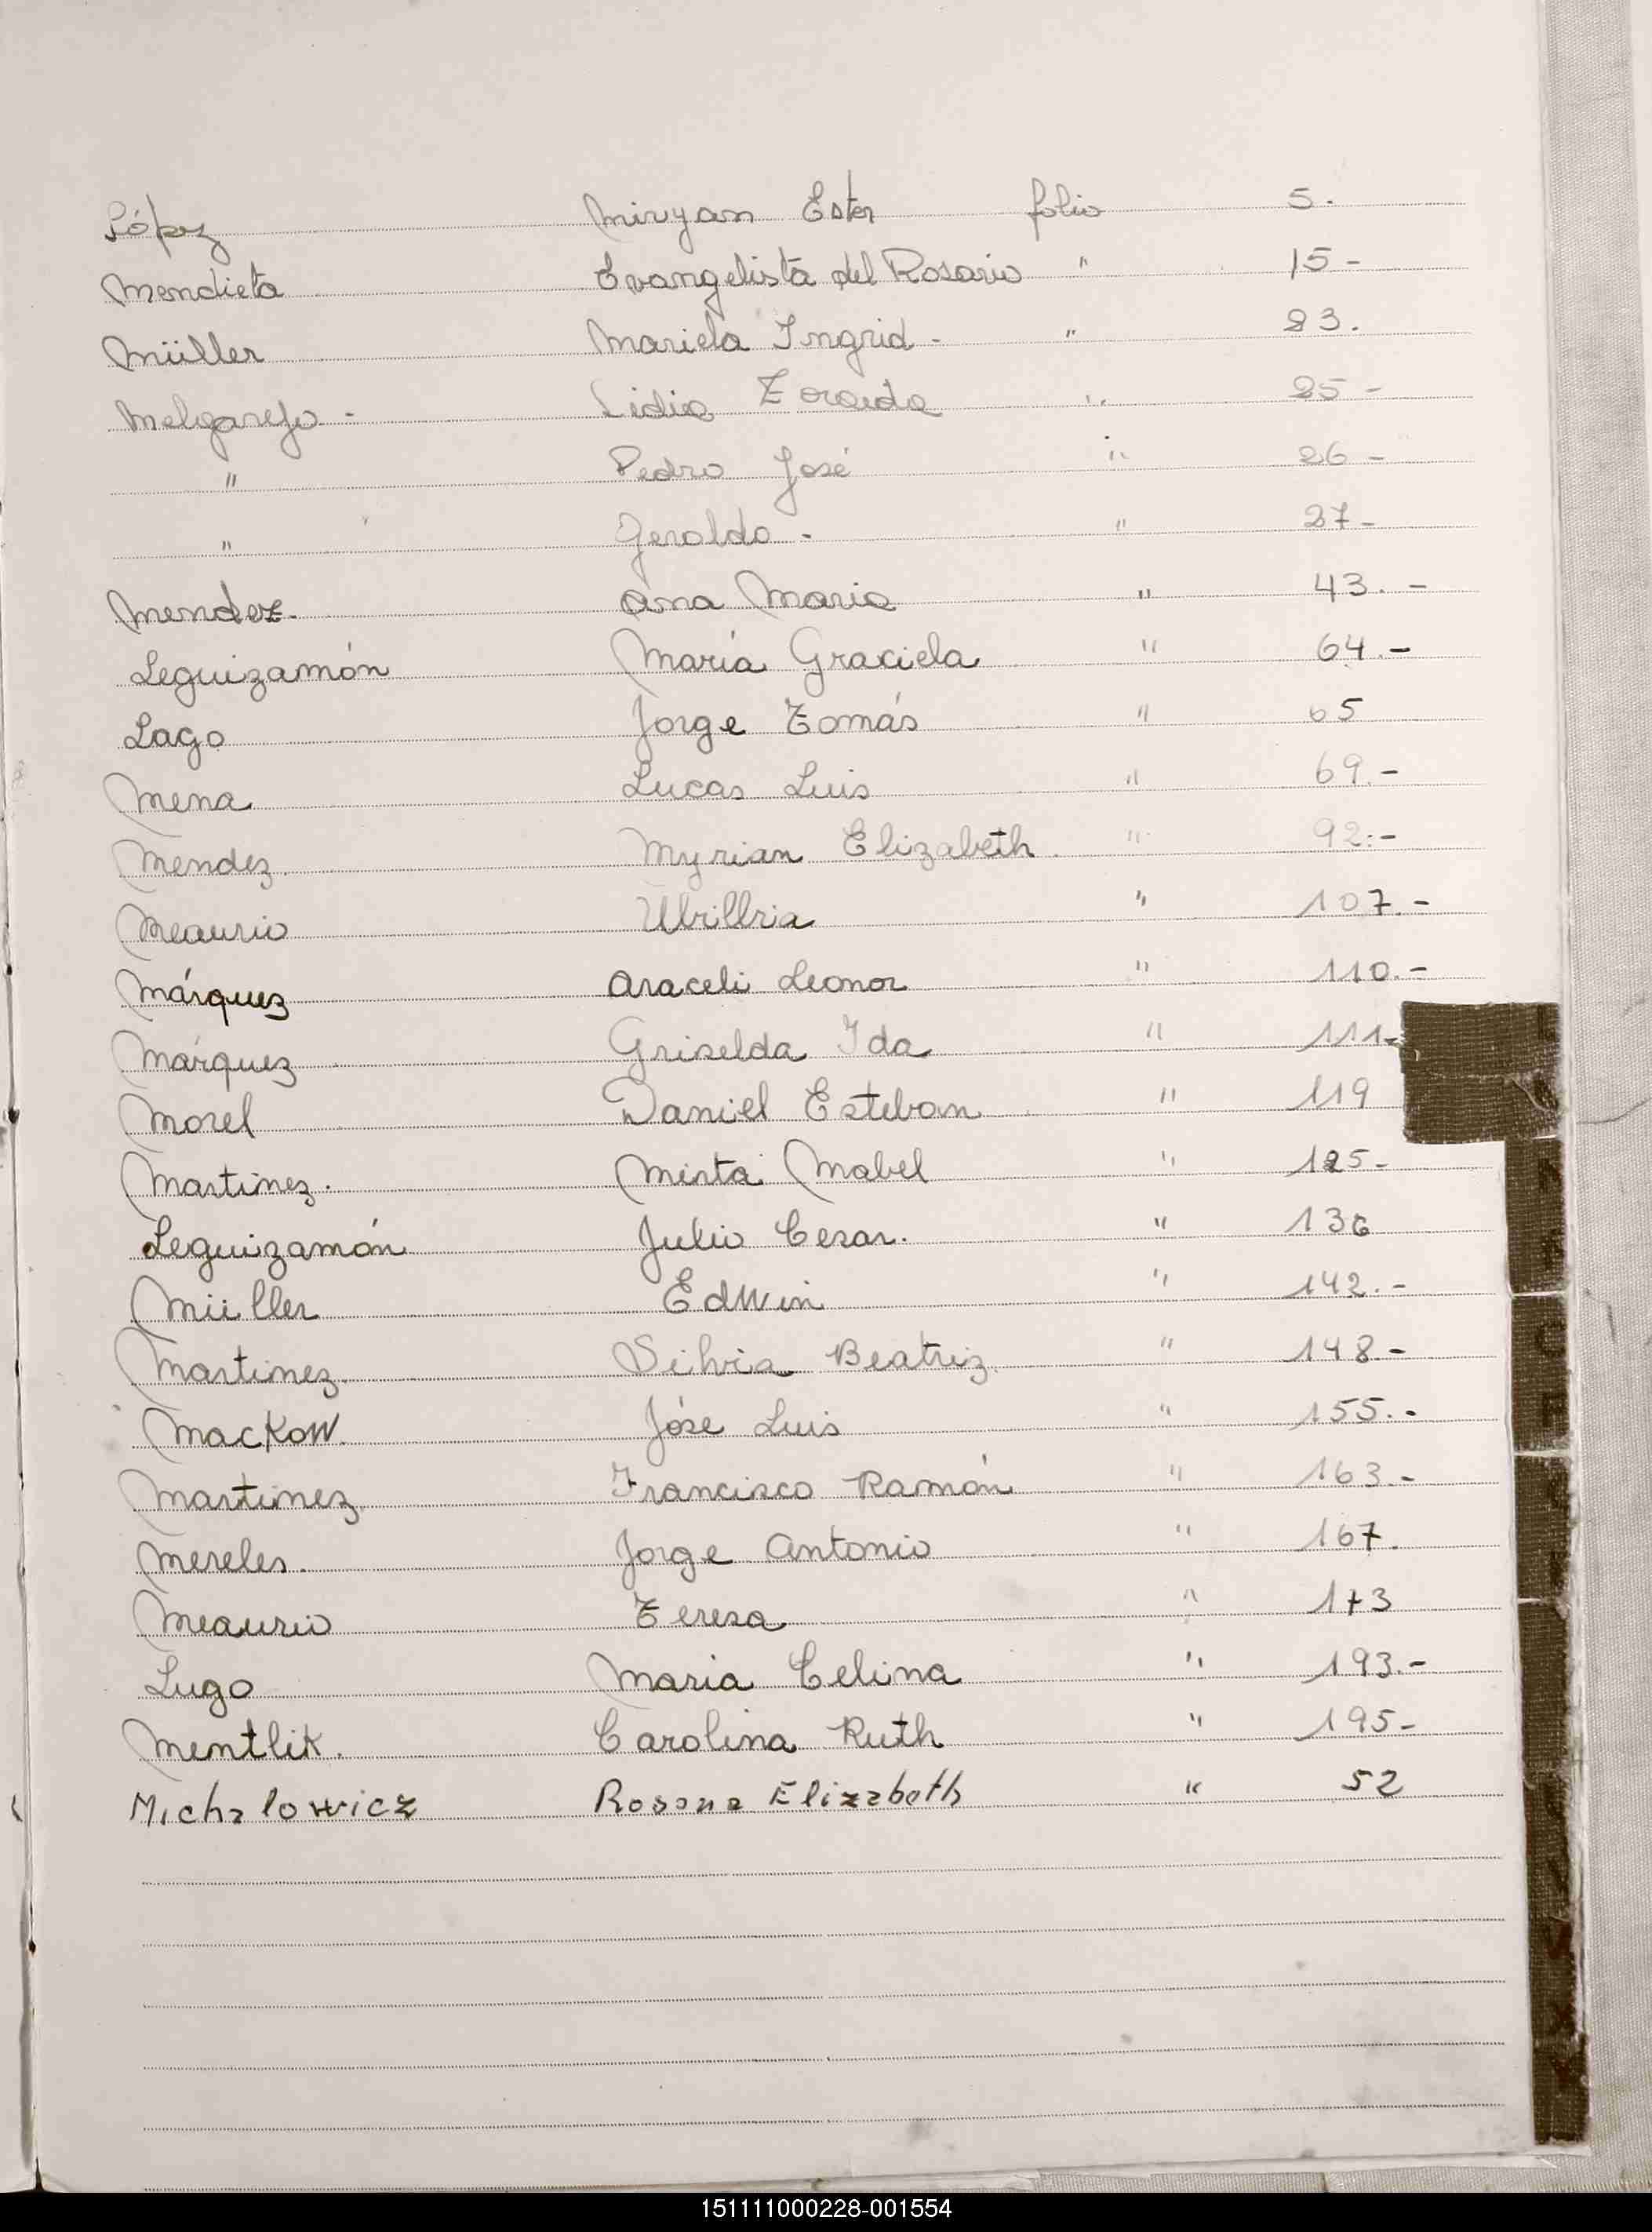 López Miryan Ester folio 5.
Mendieta Evangelista del Rosario " 15 -
Müller Mariela Ingrid - " 23.
Melgarejo - Lidia Zoraida " 25 -
" Pedro José " 26 -
" Geraldo - " 27 -
Mendez. Ana Maria " 43. -
Leguizamón María Graciela " 64. -
Lago Jorge Tomás " 65
Mena Lucas Luis " 69. -
Mendez. Myrian Elizabeth. " 92. -
Meaurio " 107. -
Márquez Araceli Leonor " 110. -
Márquez Griselda Ida " 111 -
Morel Daniel Esteban " 119
Martinez. Mirta Mabel " 125 -
Leguizamón Julio Cesar. " 136
Müller Edwin " 142. -
Martinez. Silvia Beatriz. " 148 -
Mackow. Jóse Luis " 155. -
Martinez Francisco Ramón " 163. -
Mereles. Jorge Antonio " 167.
Meaurio Teresa " 173
Lugo Maria Celina " 193. -
Mentlik. Carolina Ruth " 195 -
Michalowicz Rosana Elizabeth " 52
151111000228-001554